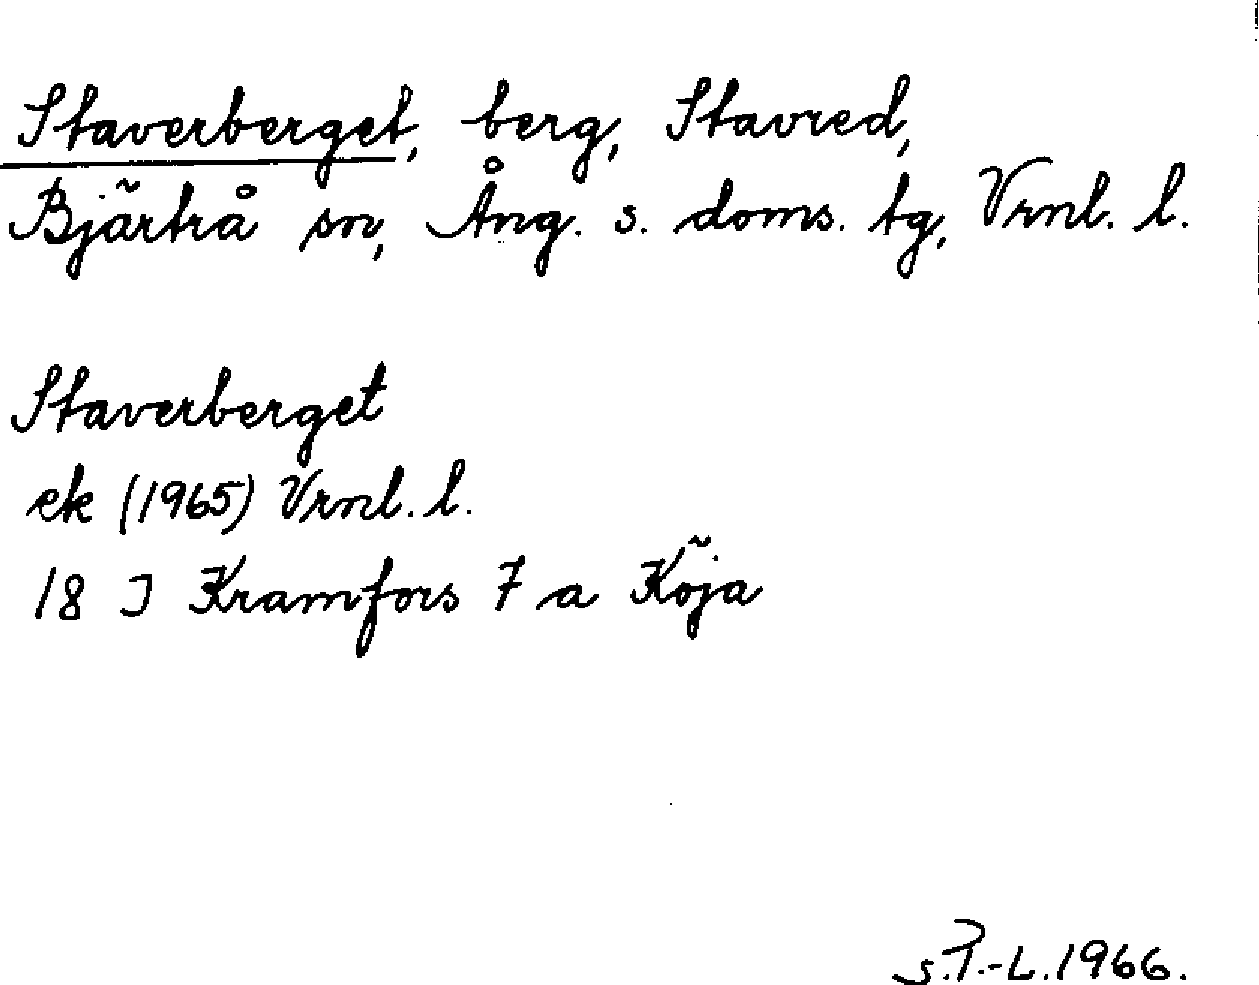 Staverberget, berg, Stavred,
Bjärtrå sn, Ång. s. doms. tg, Vrnl. l.
Staverberget
ek (1965) Vrnl. l.
18 J Kramfors 7 a Köja
S.P.-L. 1966.